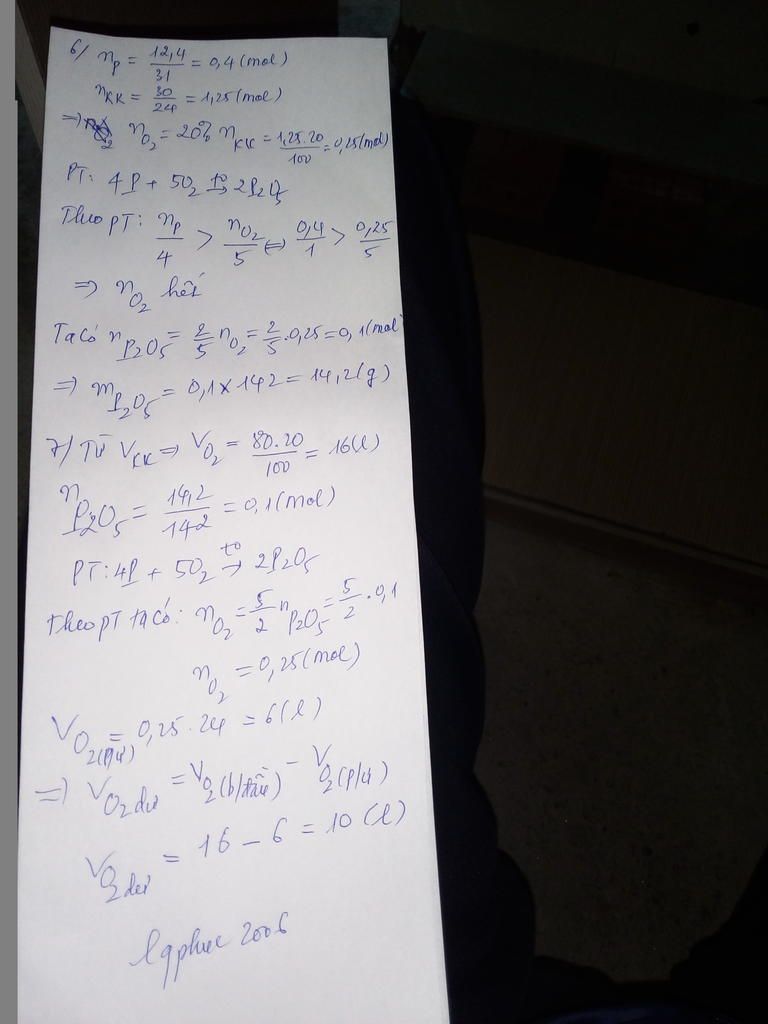 6/ nP = 12,4/31 = 0,4 (mol)
nKK = 30/24 = 1,25 (mol)
=> nO2 = 20% nKK = 1,25.20/100 = 0,25 (mol)
PT: 4P + 5O2 t°→ 2P2O5
Theo PT: nP/4 > nO2/5 <=> 0,4/1 > 0,25/5
=> nO2 hết
Ta có nP2O5 = 2/5 nO2 = 2/5 . 0,25 = 0,1 (mol)
=> mP2O5 = 0,1 x 142 = 14,2 (g)
7/ Từ VKK => VO2 = 80.20/100 = 16 (l)
nP2O5 = 14,2/142 = 0,1 (mol)
PT: 4P + 5O2 t°→ 2P2O5
Theo PT ta có: nO2 = 5/2 nP2O5 = 5/2 . 0,1
nO2 = 0,25 (mol)
VO2(p/ư) = 0,25 . 24 = 6 (l)
=> VO2 dư = VO2(b/đầu) - VO2(p/ư)
VO2 dư = 16 - 6 = 10 (l)
lqphuc 2006